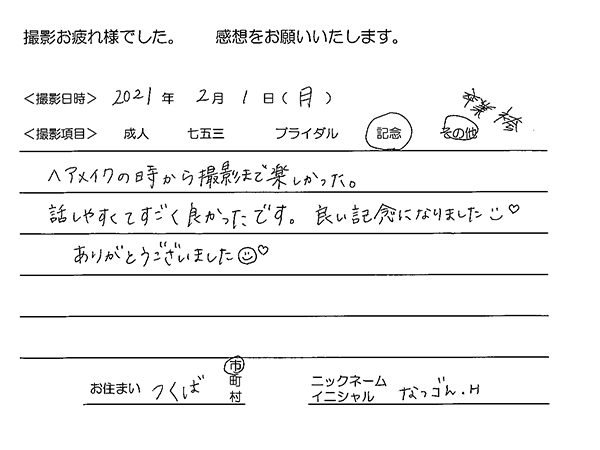 撮影お疲れ様でした。 感想をお願いいたします。
＜撮影日時＞ 2021年 2月 1日(月)
卒業袴
＜撮影項目＞ 成人 七五三 ブライダル 記念 その他
ヘアメイクの時から撮影まで楽しかった。
話しやすくてすごく良かったです。良い記念になりました☺♡
ありがとうございました☺♡
お住まい つくば 市 町 村
ニックネーム イニシャル なつごん.H